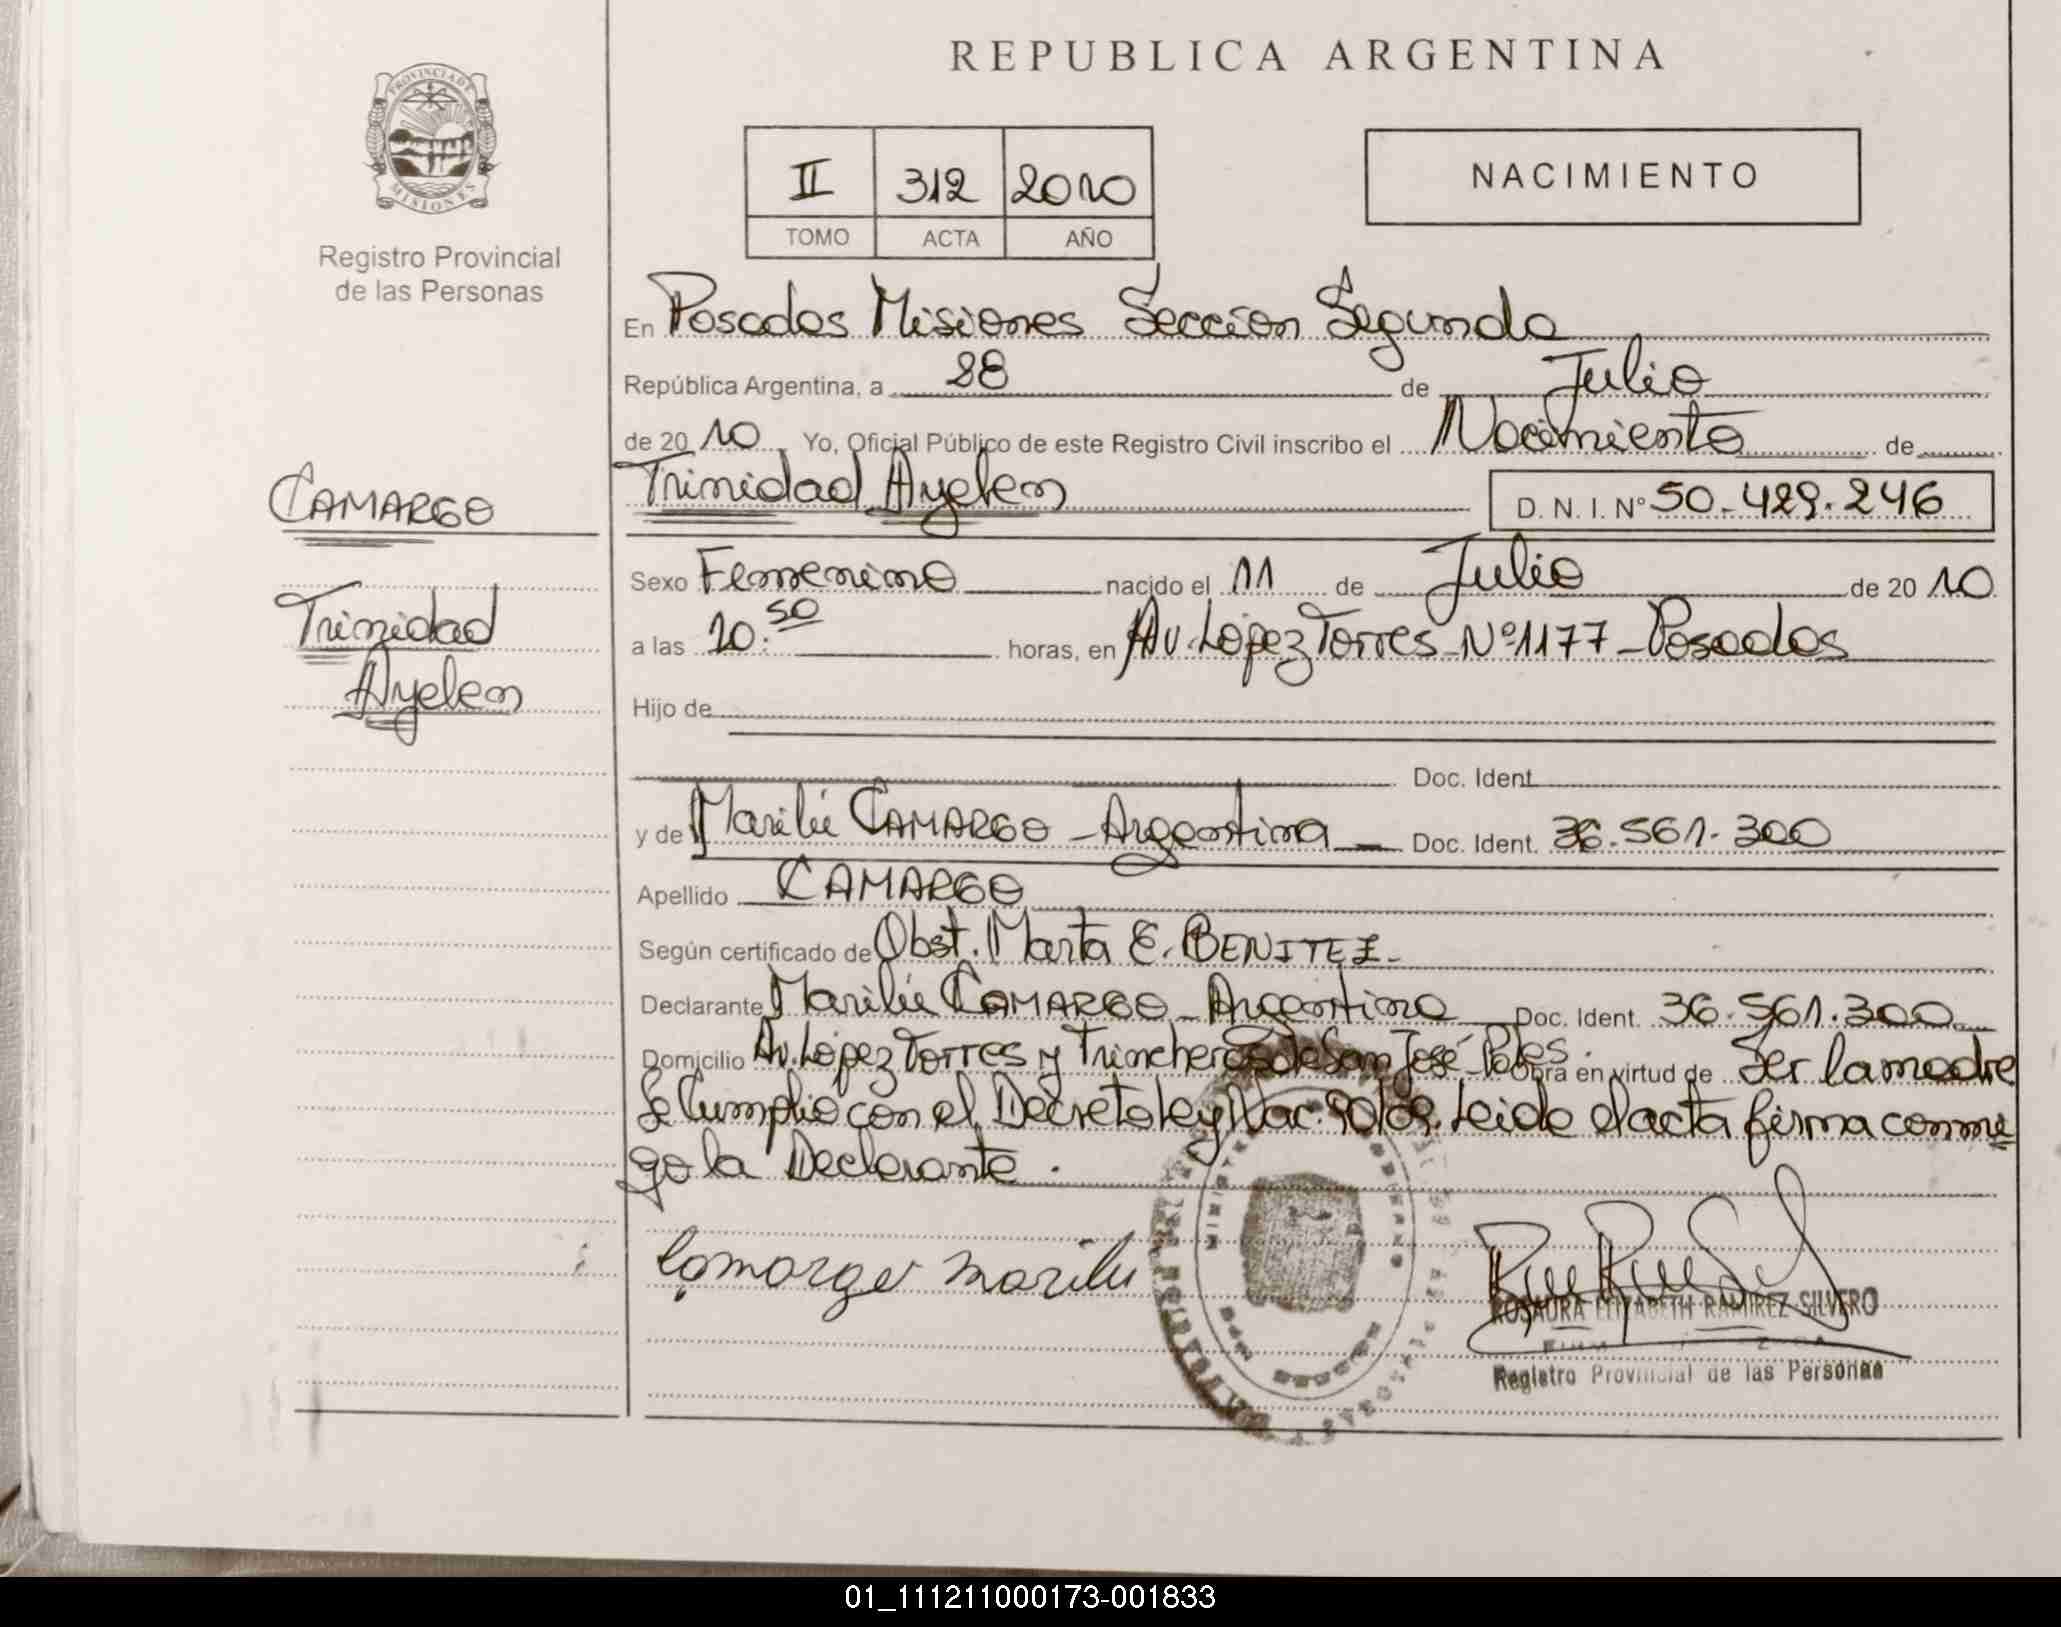 REPUBLICA ARGENTINA
PROVINCIA DE MISIONES
Registro Provincial
de las Personas
II 312 2010
TOMO ACTA AÑO
NACIMIENTO
En Posadas Misiones Sección Segunda
República Argentina, a 28 de Julio
de 2010 Yo, Oficial Público de este Registro Civil inscribo el Nacimiento de
Trinidad Ayelen D. N. I. Nº 50.429.246
CAMARGO
Trinidad
Ayelen
Sexo Femenino nacido el 11 de Julio de 2010
a las 10:50 horas, en Av. López Torres Nº 1177 - Posadas
Hijo de
Doc. Ident.
y de Marilú CAMARGO - Argentina Doc. Ident. 36.561.300
Apellido CAMARGO
Según certificado de Obst. Marta E. BENITEZ.
Declarante Marilú CAMARGO - Argentina Doc. Ident. 36.561.300
Domicilio Av. López Torres y Trincheras de San José - Pdas. Obra en virtud de Ser la madre
Se Cumplio con el Decreto ley Nac. Leido el acta firma conmi
go la Declarante.
Camargo marilu
ROSAURA ELIZABETH RAMIREZ SILVERO
Registro Provincial de las Personas
01_111211000173-001833